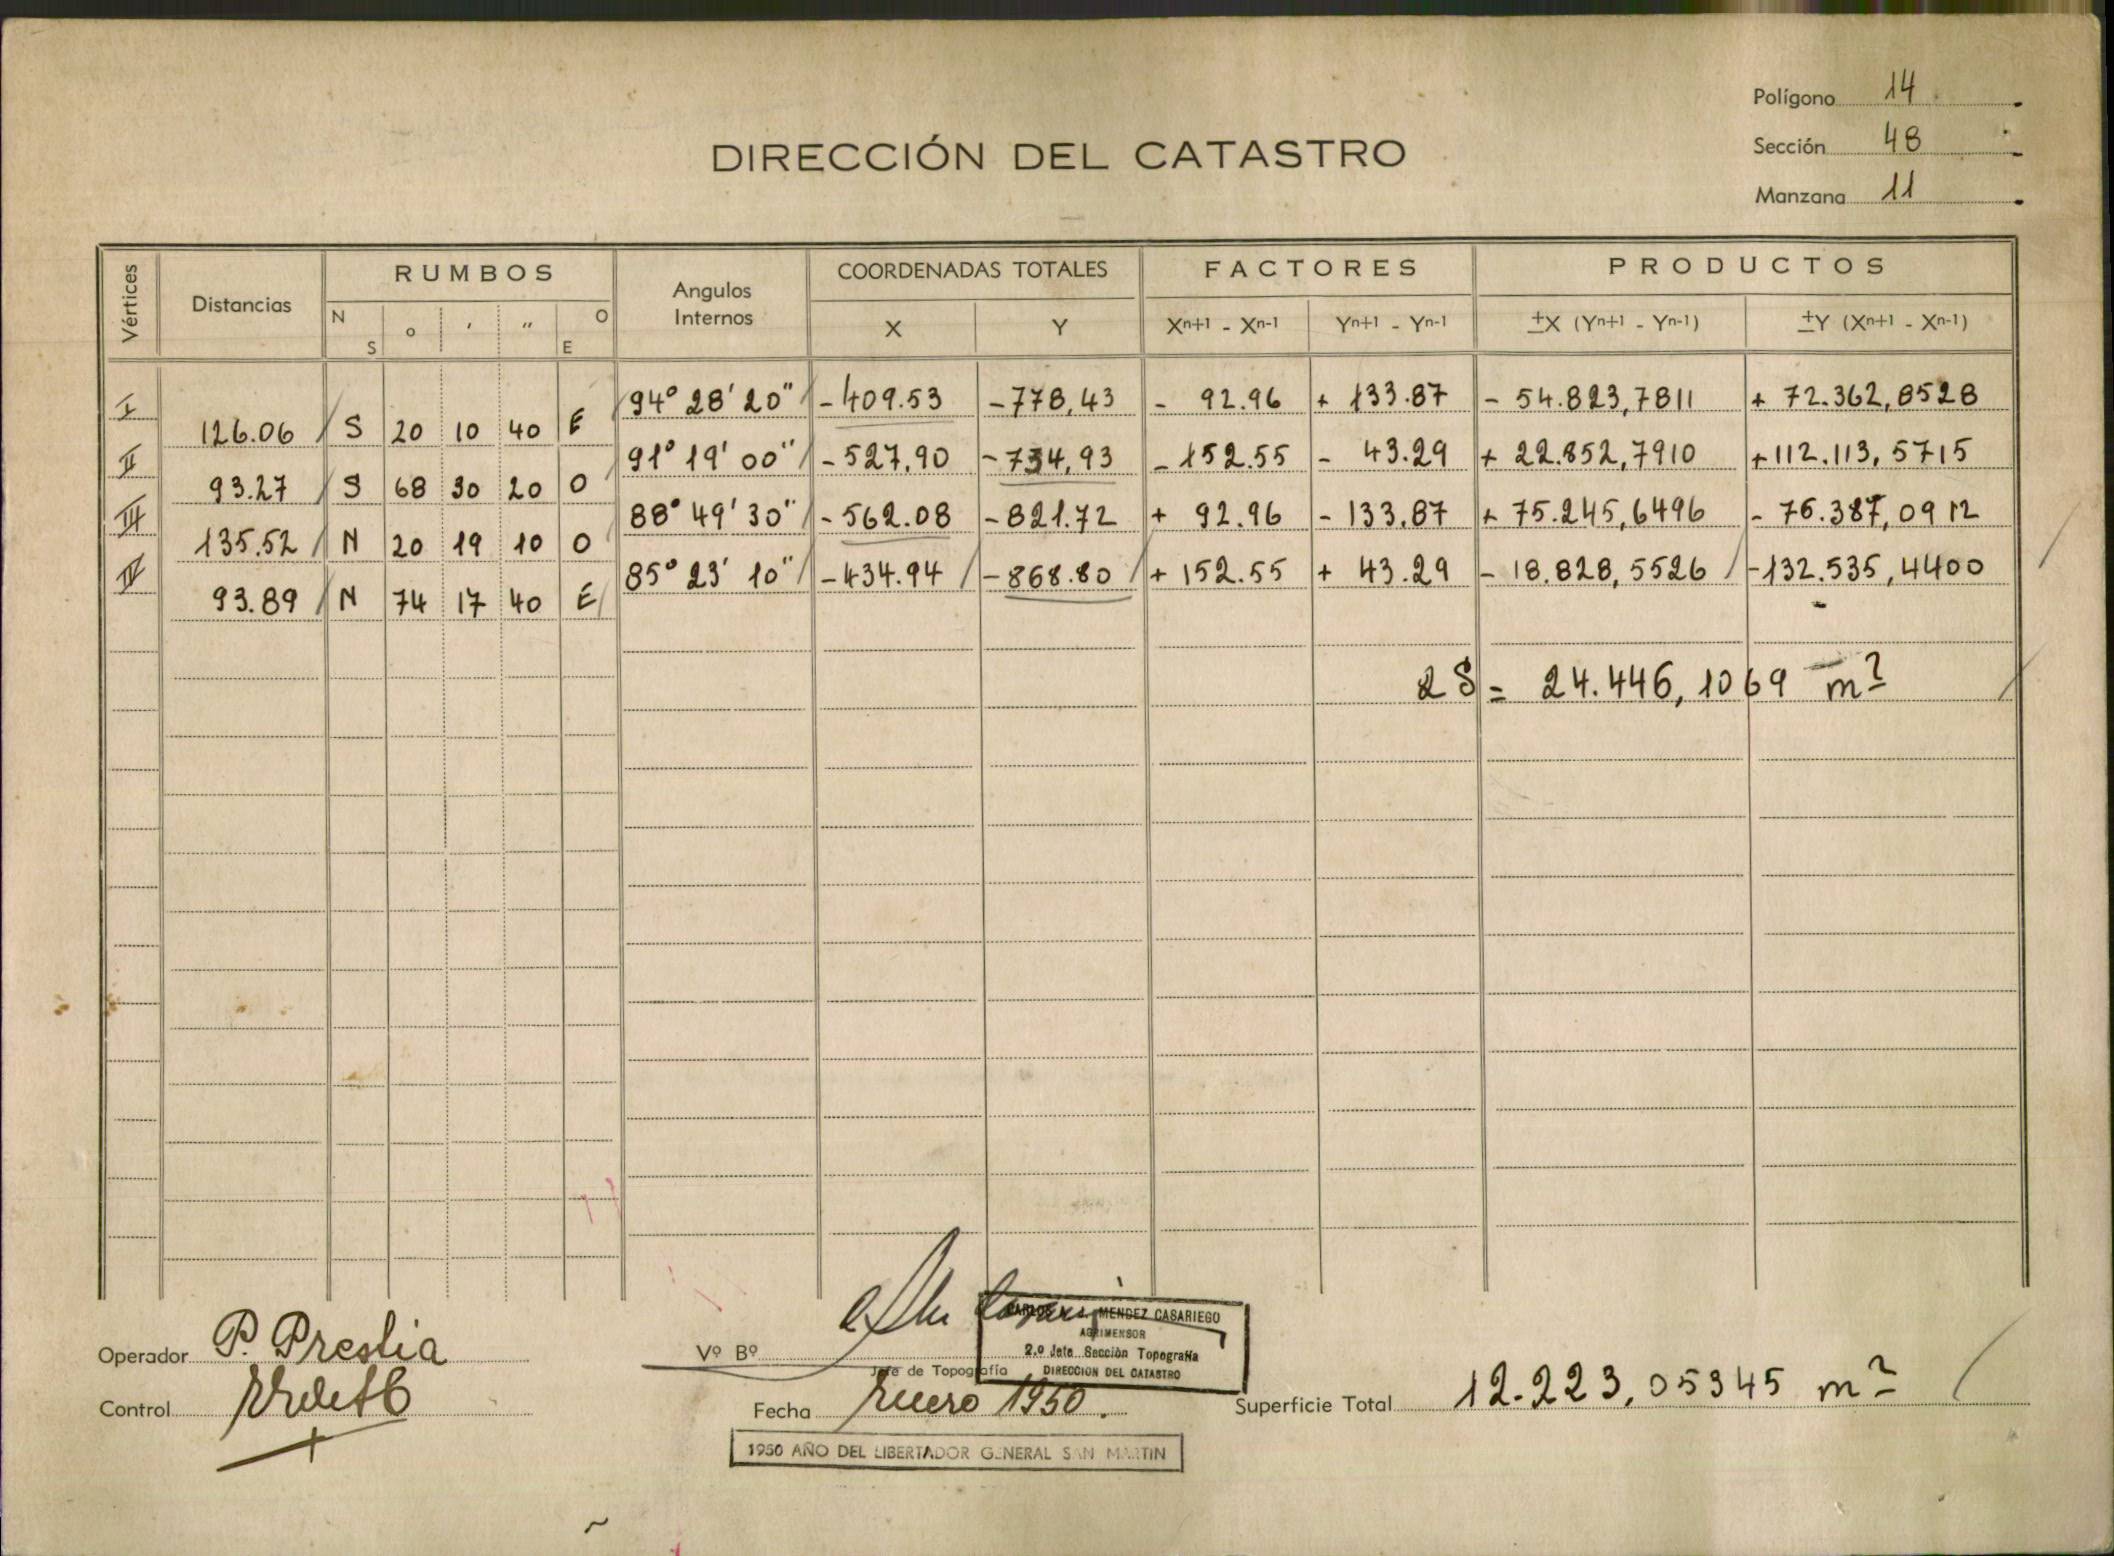 Polígono 14
Sección 48
Manzana 11
DIRECCIÓN DEL CATASTRO
Vértices Distancias RUMBOS Angulos Internos COORDENADAS TOTALES FACTORES PRODUCTOS
N S o ' " O E X Y Xn+1 - Xn-1 Yn+1 - Yn-1 ±X (Yn+1 - Yn-1) ±Y (Xn+1 - Xn-1)
I 94° 28' 20" -409.53 -778,43 - 92.96 + 133.87 - 54.823,7811 + 72.362,8528
126.06 S 20 10 40 E
II 91° 19' 00" -527,90 -734,93 -152.55 - 43.29 + 22.852,7910 +112.113,5715
93.27 S 68 30 20 O
III 88° 49' 30" -562.08 -821.72 + 92.96 - 133,87 + 75.245,6496 - 76.387,0912
135.52 N 20 19 10 O
IV 85° 23' 10" -434.94 -868.80 + 152.55 + 43.29 - 18.828,5526 -132.535,4400
93.89 N 74 17 40 E
2S = 24.446,1069 m²
Operador P. Prestia
Control
Vº Bº
Jefe de Topografía
CARLOS MENDEZ CASARIEGO
AGRIMENSOR
2.º Jefe Sección Topografía
DIRECCION DEL CATASTRO
Fecha Enero 1950.
Superficie Total 12.223,05345 m²
1950 AÑO DEL LIBERTADOR GENERAL SAN MARTIN